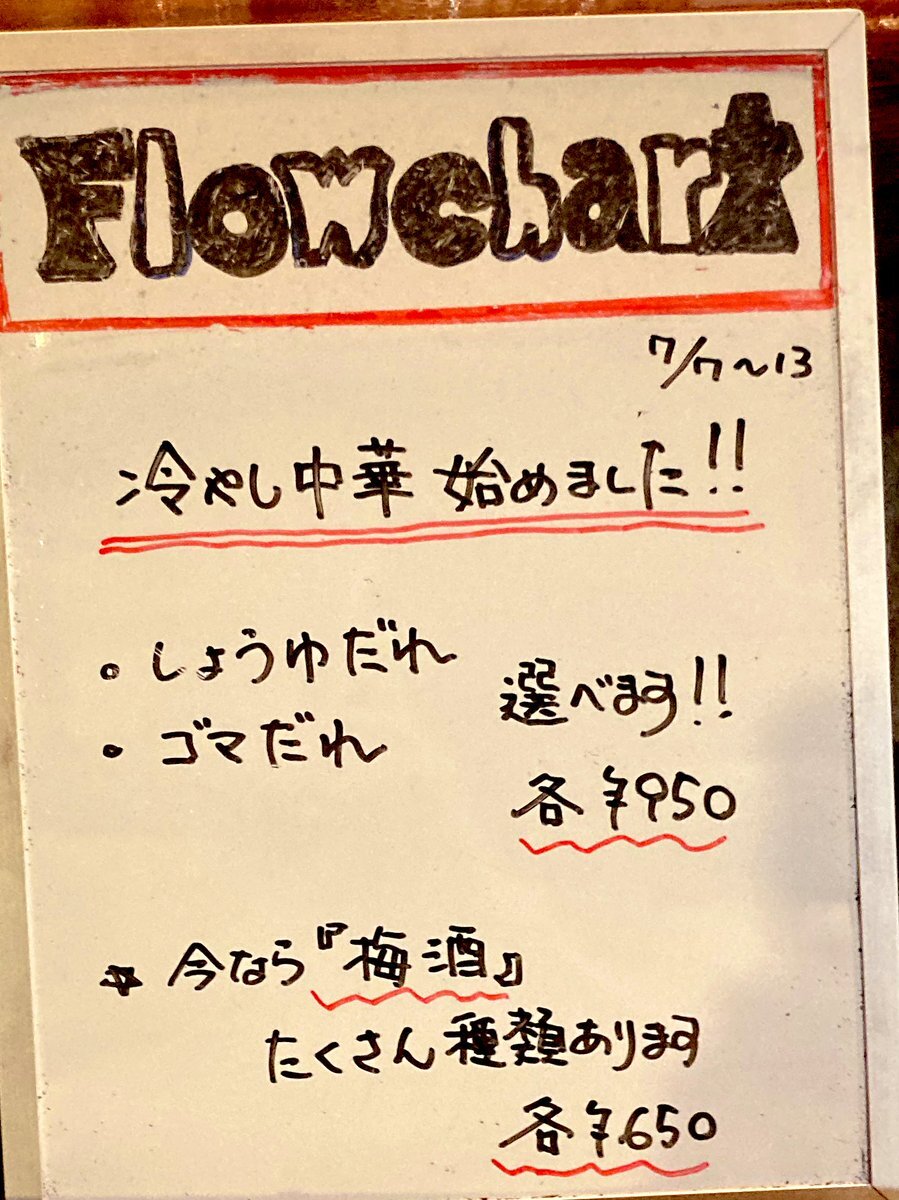 Flowchart
7/7~13
冷やし中華 始めました!!
• しょうゆだれ
• ゴマだれ
選べます!!
各¥950
☆ 今なら『梅酒』
たくさん種類あります
各¥650